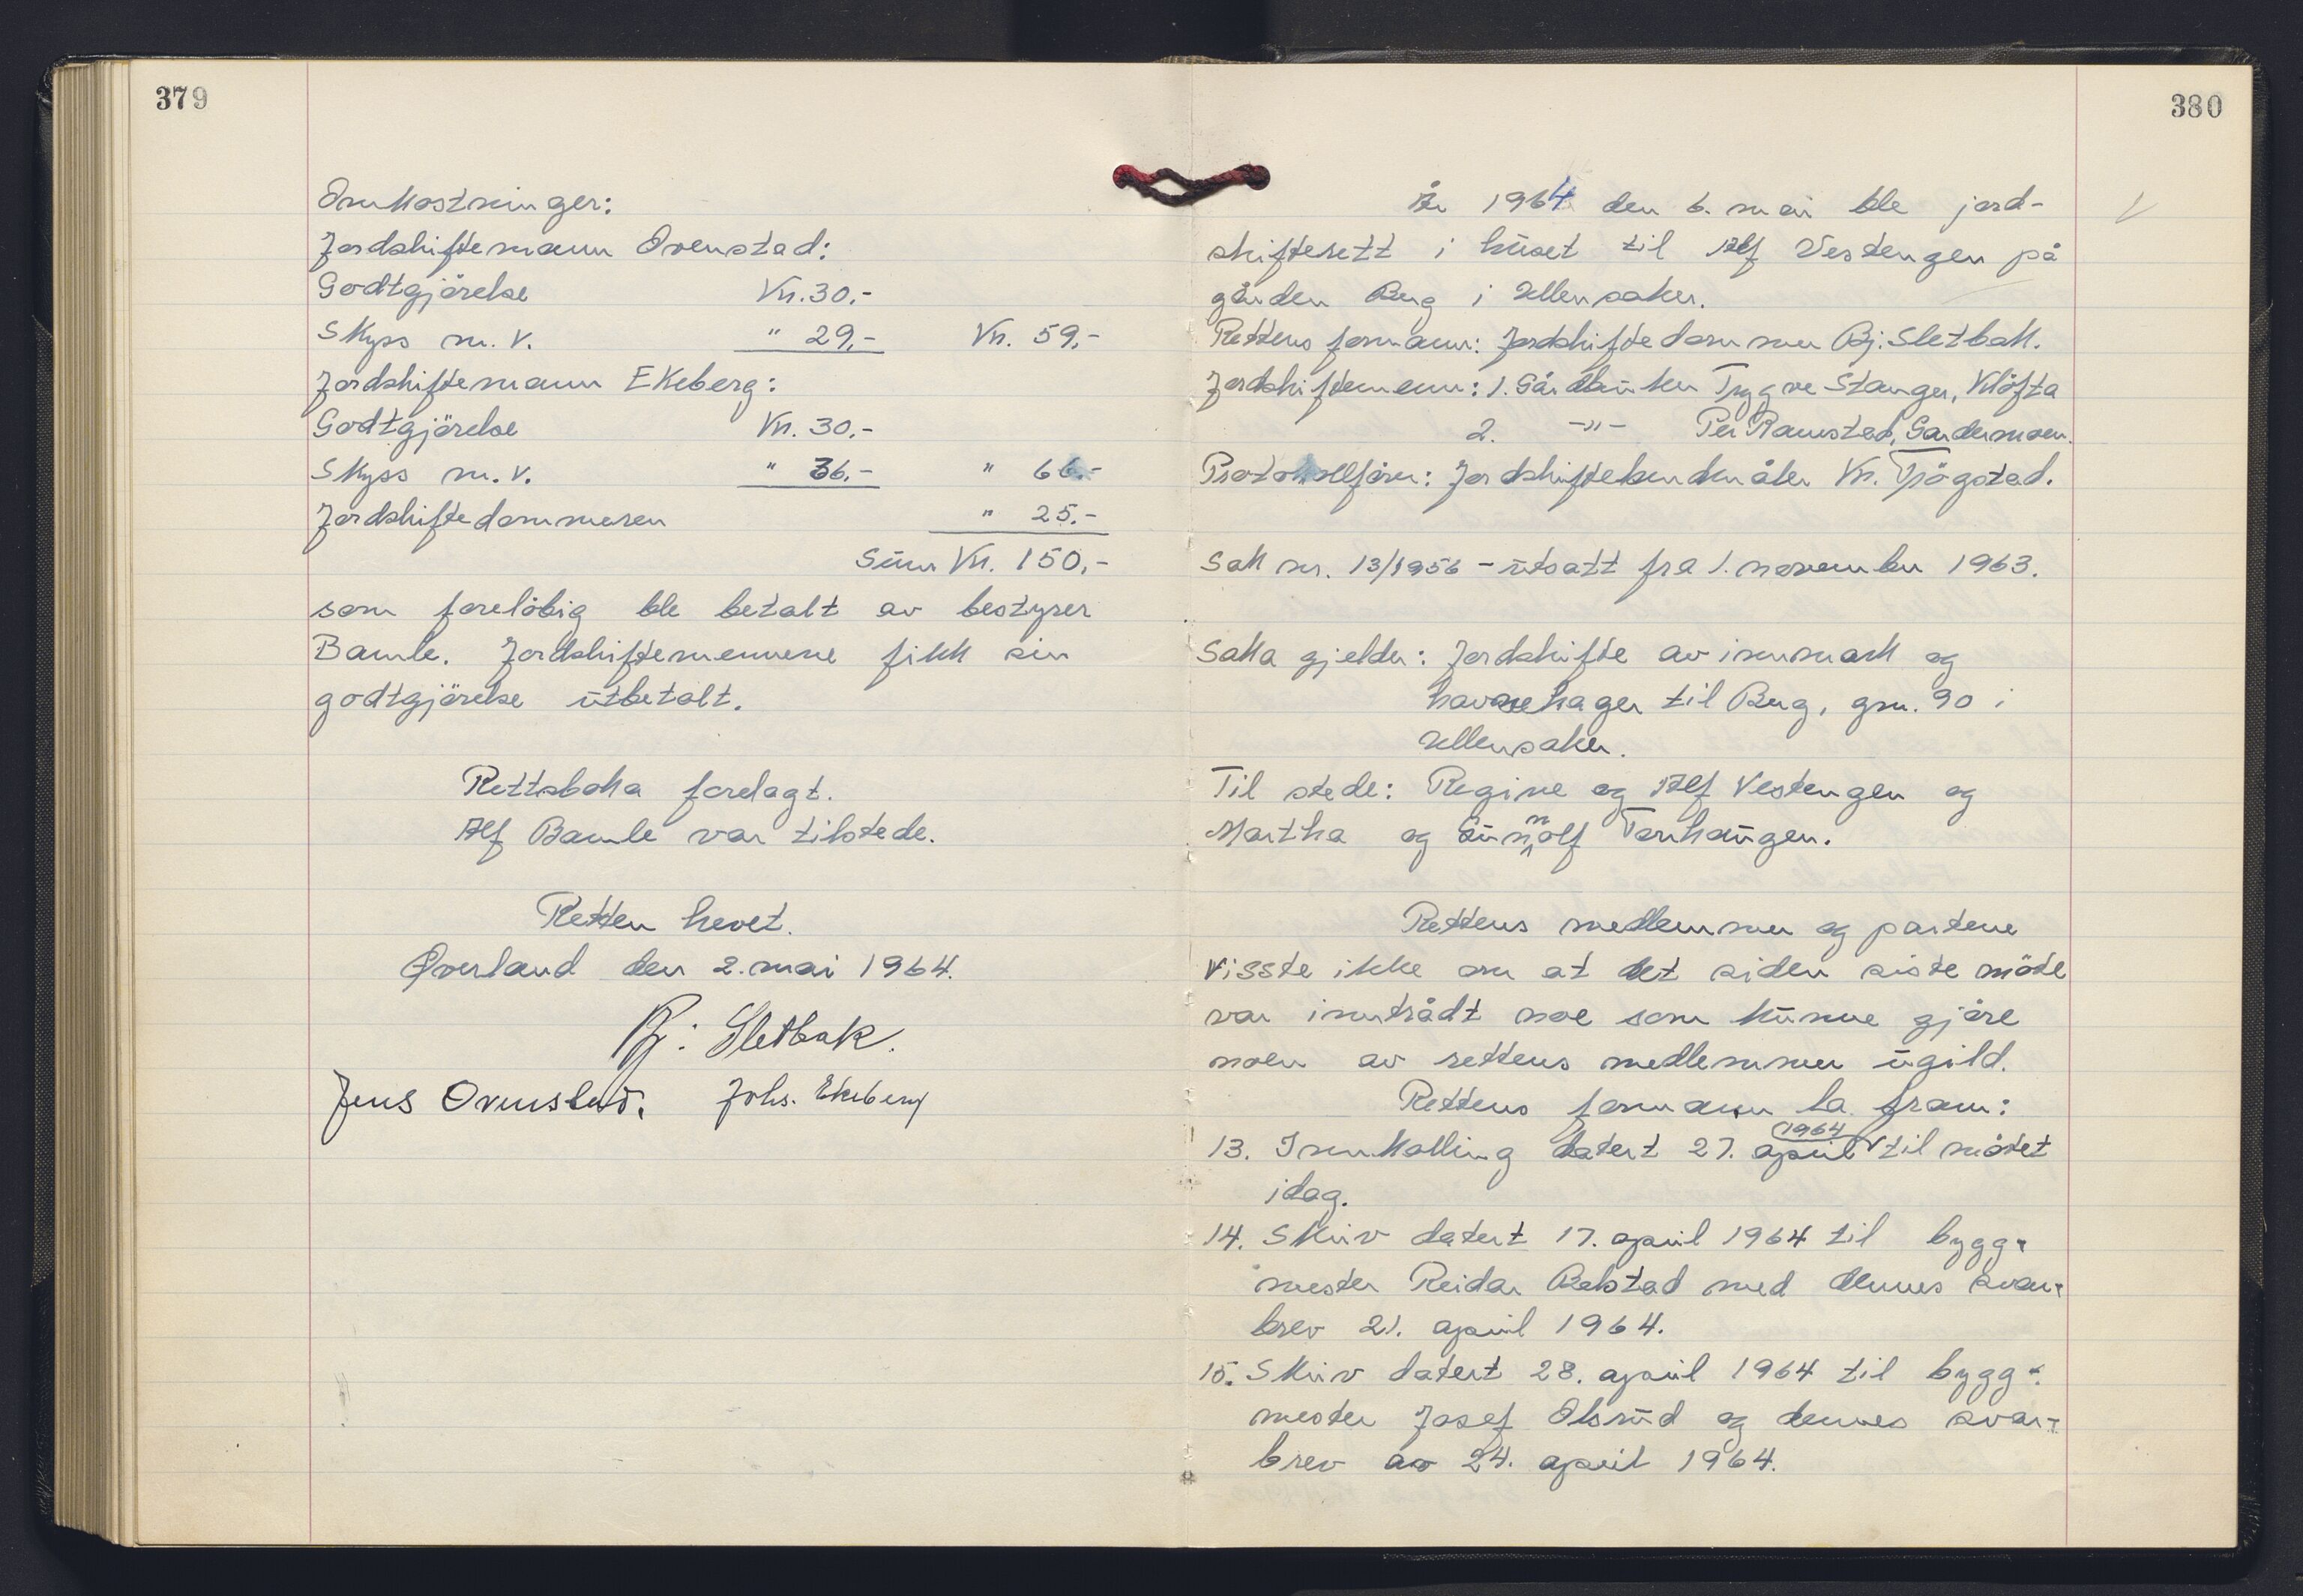 379
Omkostninger:
Jordskiftemann Ovenstad:
Godtgjörelse Kr. 30.-
Skyss m. v. " 29.- Kr. 59.-
Jordskiftemann Ekeberg:
Godtgjörelse Kr. 30.-
Skyss m. v. " 36.- " 66.-
Jordskiftedommeren " 25.-
Sum Kr. 150.-
som forelöbig ble betalt av bestyrer
Bamle. Jordskiftemennene fikk sin
godtgjörelse utbetalt.
Rettsboka forelagt.
Alf Bamle var tilstede.
Retten hevet.
Øverland den 2. mai 1964.
Bj: Sletbak.
Jens Ovenstad. Johs. Ekeberg
380
År 1964 den 6. mai ble jord-
skifterett i huset til Alf Vestengen på
gården Berg i Ullensaker.
Rettens formann: Jordskiftedommer Bj. Sletbak.
Jordskiftemenn: 1. Gårdbruker Trygve Stanger, Klöfta
2. -"- Per Ramstad, Gardermoen.
Protokollförer: Jordskiftekandidat Kr. Tjögstad.
Sak nr. 13/1956 - utsatt fra 1. november 1963.
Saka gjelder: Jordskifte av innmark og
havnehager til Berg, gnr. 90 i
Ullensaker.
Til stede: Regine og Alf Vestengen og
Martha og Gunnolf Torhaugen.
Rettens medlemmer og partene
visste ikke om at det siden siste möte
var inntrådt noe som kunne gjöre
noen av rettens medlemmer ugild.
Rettens formann la fram:
13. Innkalling datert 27. april 1964 til mötet
idag.
14. Skriv datert 17. april 1964 til bygg-
mester Reidar Belstad med dennes svar-
brev 21. april 1964.
15. Skriv datert 28. april 1964 til bygg-
mester Josef Olsrud og dennes svar-
brev av 24. april 1964.